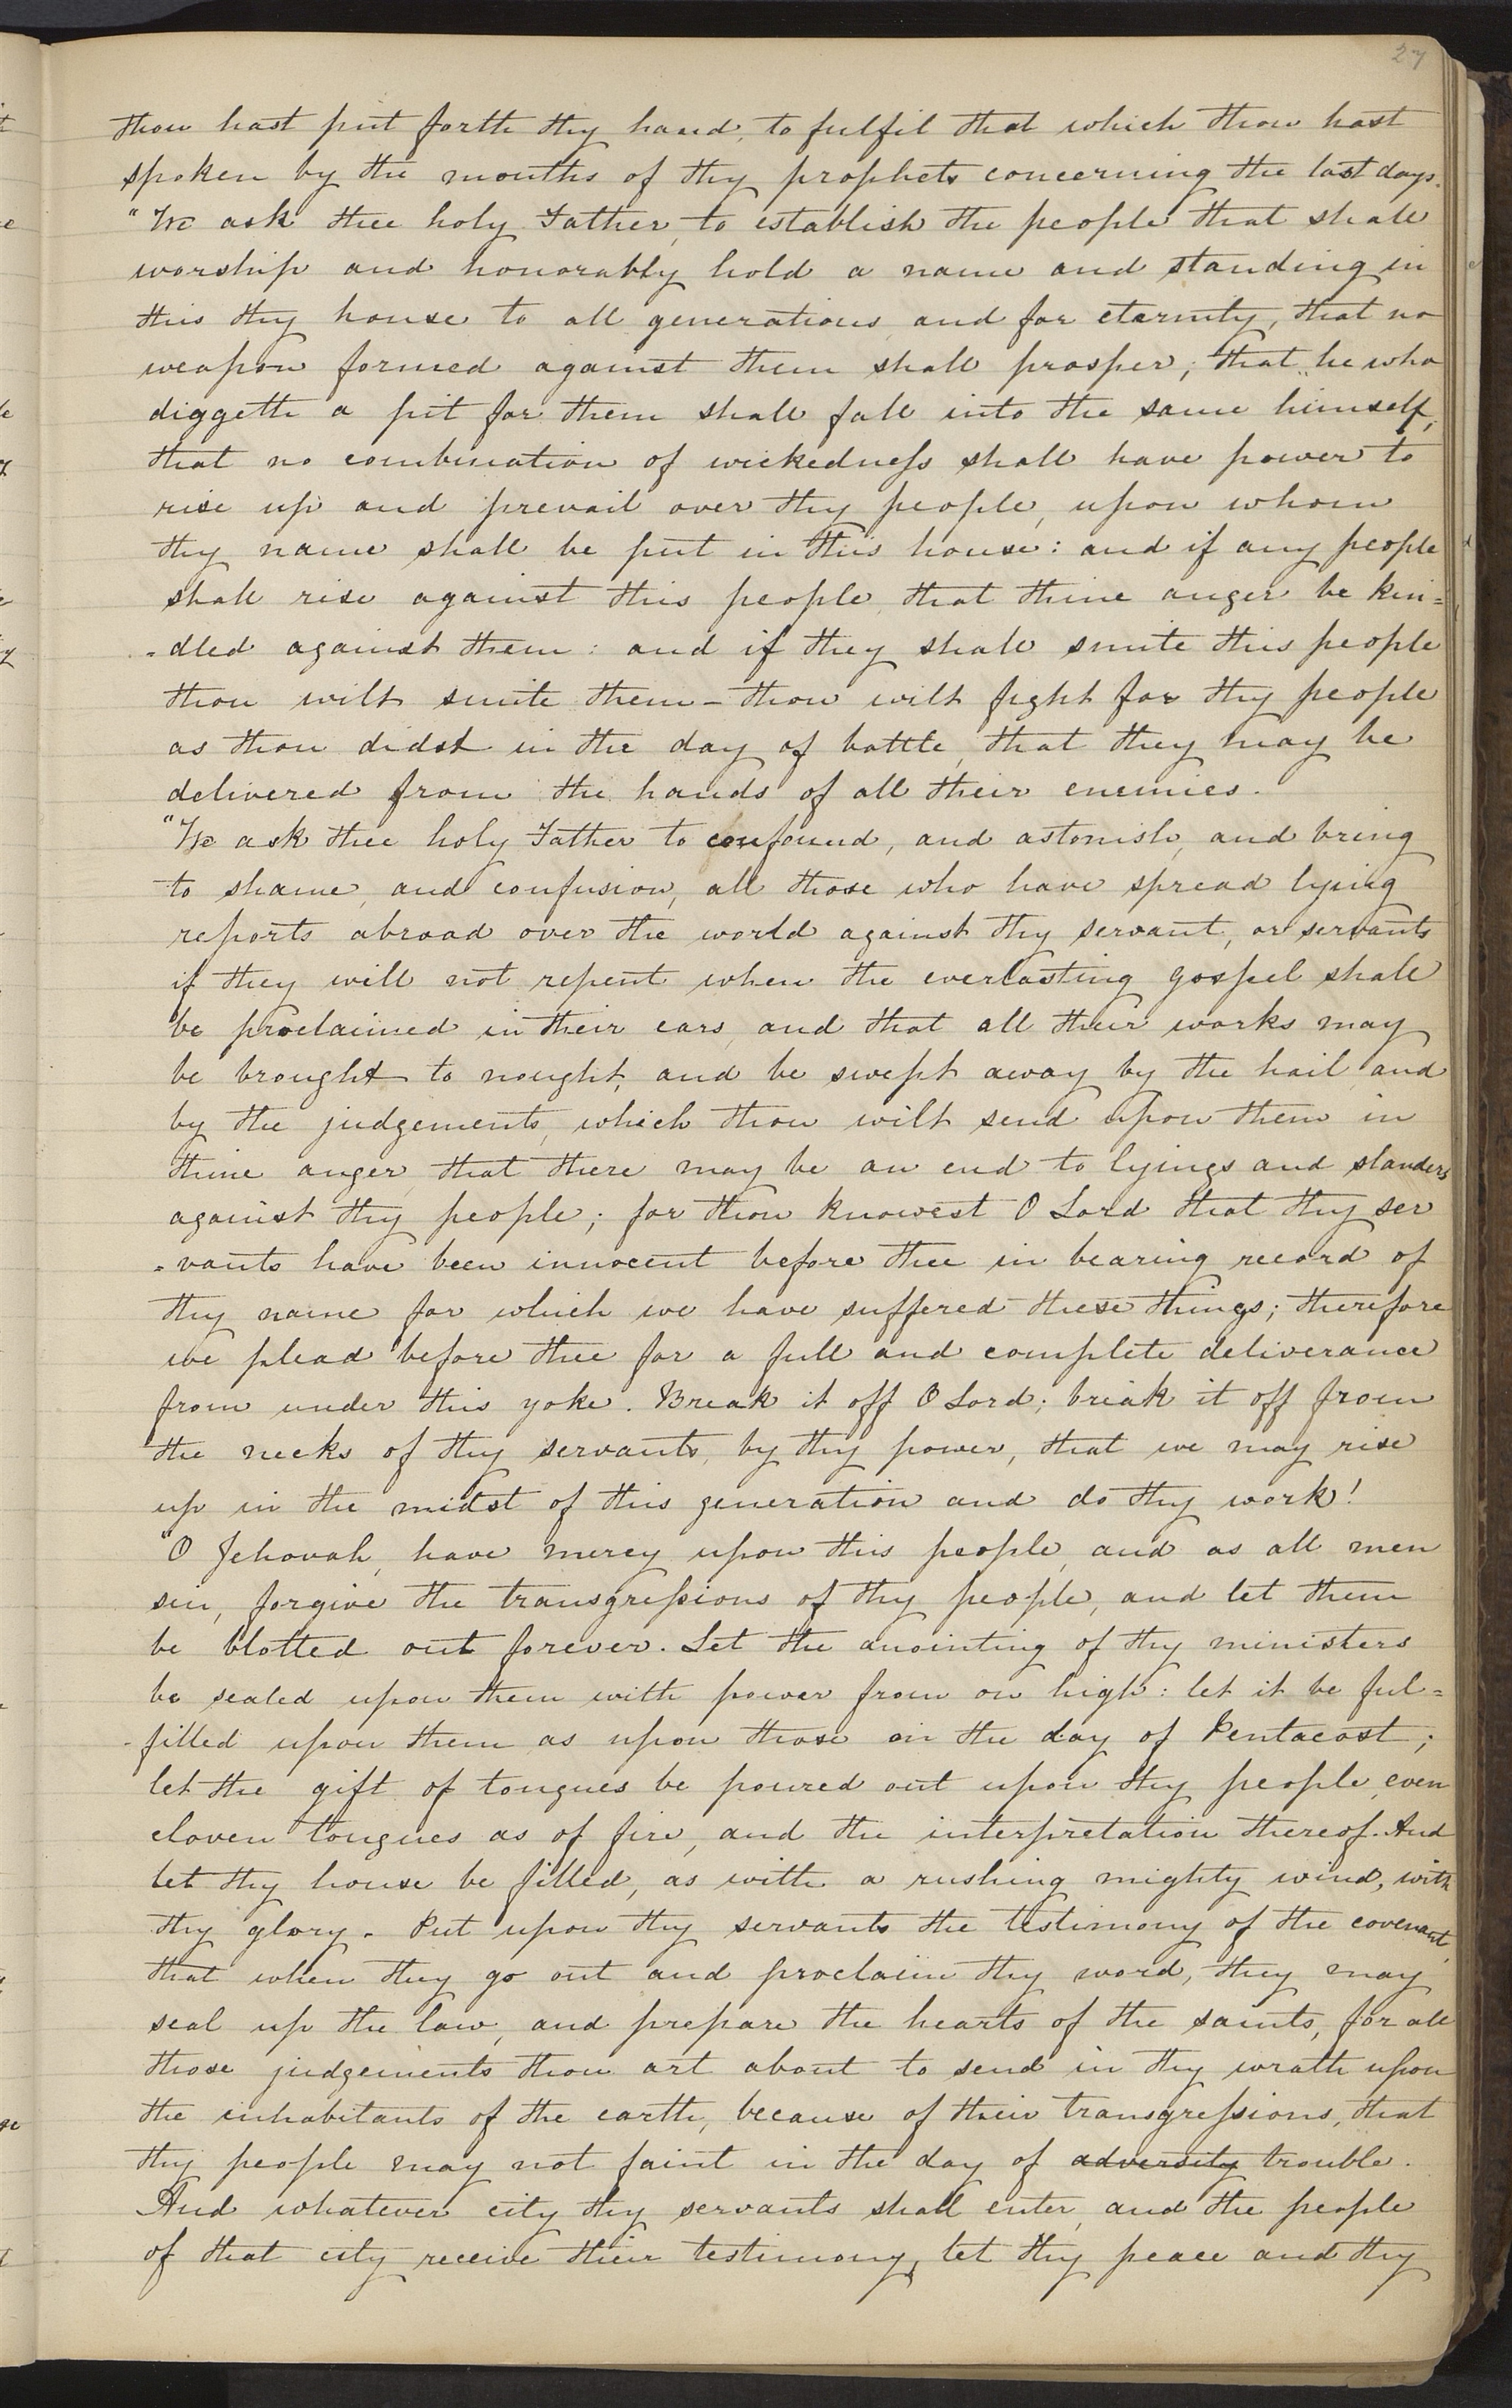 27
thou hast put forth thy hand, to fulfil that which thou hast
spoken by the mouths of thy prophets concerning the last days.
"We ask thee holy Father, to establish the people that shall
worship and honorably hold a name and standing in
this thy house to all generations and for eternity, that no
weapon formed against them shall prosper; that he who
diggeth a pit for them shall fall into the same himself,
that no combination of wickedness shall have power to
rise up and prevail over thy people, upon whom
thy name shall be put in this house: and if any people
shall rise against this people, that thine anger be kin=
=dled against them: and if they shall smite this people
thou wilt smite them - thou wilt fight for thy people
as thou didst in the day of battle, that they may be
delivered from the hands of all their enemies.
"We ask thee holy Father to confound, and astonish, and bring
to shame, and confusion, all those who have spread lying
reports abroad over the world against thy servant, or servants
if they will not repent when the everlasting gospel shall
be proclaimed in their ears, and that all their works may
be brought to nought, and be swept away by the hail, and
by the judgements, which thou wilt send upon them in
thine anger, that there may be an end to lyings and slanders
against thy people; for thou knowest O Lord that thy ser
=vants have been innocent before thee in bearing record of
thy name for which we have suffered these things; therefore
we plead before thee for a full and complete deliverance
from under this yoke. Break it off O Lord; break it off from
the necks of thy servants, by thy power, that we may rise
up in the midst of this generation and do thy work!
"O Jehovah, have mercy upon this people, and as all men
sin, forgive the transgressions of thy people, and let them
be blotted out forever. Let the anointing of thy ministers
be sealed upon them with power from on high: let it be ful=
-filled upon them as upon those on the day of Pentacost;
let the gift of tongues be poured out upon thy people, even
cloven tongues as of fire, and the interpretation thereof. And
let thy house be filled, as with a rushing mighty wind, with
thy glory. Put upon thy servants the testimony of the covenant,
that when they go out and proclaim thy word, they may
seal up the law, and prepare the hearts of the saints, for all
those judgements thou art about to send in thy wrath upon
the inhabitants of the earth, because of their transgressions, that
thy people may not faint in the day of adversity trouble.
And whatever city thy servants shall enter, and the people
of that city receive their testimony, let thy peace and thy